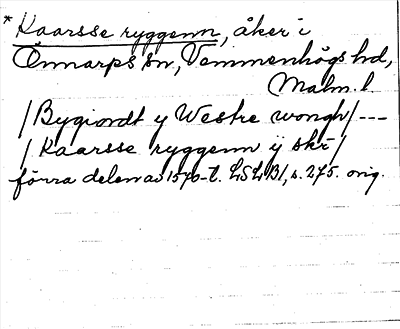 *Kaarsse ryggenn, åker i
Önnarps sn, Vemmenhögs hd,
Malm. l
/Bygiordt y Westre wongh/---
/Kaarsse ryggenn ÿ skr/
förra delen av 1570-t. LSLB1, s. 275. orig.